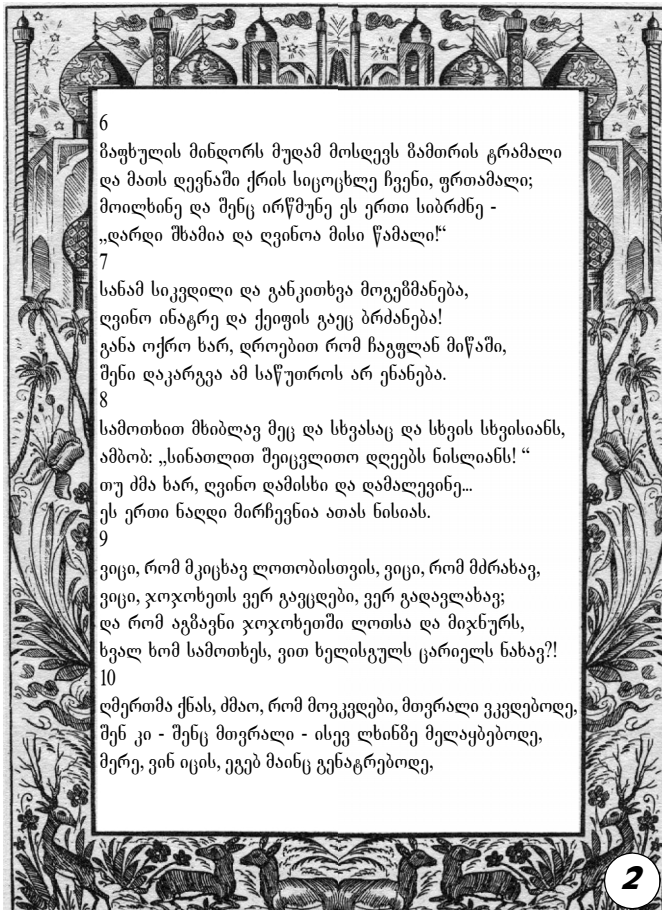 6
ზაფხულის მინდორს მუდამ მოსდევს ზამთრის ტრამალი
და მათს დევნაში ქრის სიცოცხლე ჩვენი, ფრთამალი;
მოილხინე და შენც ირწმუნე ეს ერთი სიბრძნე -
„დარდი შხამია და ღვინოა მისი წამალი!“
7
სანამ სიკვდილი და განკითხვა მოგეზმანება,
ღვინო ინატრე და ქეიფის გაეც ბრძანება!
განა ოქრო ხარ, დროებით რომ ჩაგფლან მიწაში,
შენი დაკარგვა ამ საწუთროს არ ენანება.
8
სამოთხით მხიბლავ მეც და სხვასაც და სხვის სხვისიანს,
ამბობ: „სინათლით შეიცვლითო დღეებს ნისლიანს! “
თუ ძმა ხარ, ღვინო დამისხი და დამალევინე...
ეს ერთი ნაღდი მირჩევნია ათას ნისიას.
9
ვიცი, რომ მკიცხავ ლოთობისთვის, ვიცი, რომ მძრახავ,
ვიცი, ჯოჯოხეთს ვერ გავცდები, ვერ გადავლახავ;
და რომ აგზავნი ჯოჯოხეთში ლოთსა და მიჯნურს,
ხვალ ხომ სამოთხეს, ვით ხელისგულს ცარიელს ნახავ?!
10
ღმერთმა ქნას, ძმაო, რომ მოვკვდები, მთვრალი ვკვდებოდე,
შენ კი - შენც მთვრალი - ისევ ლხინზე მელაყბებოდე,
მერე, ვინ იცის, ეგებ მაინც გენატრებოდე,
2